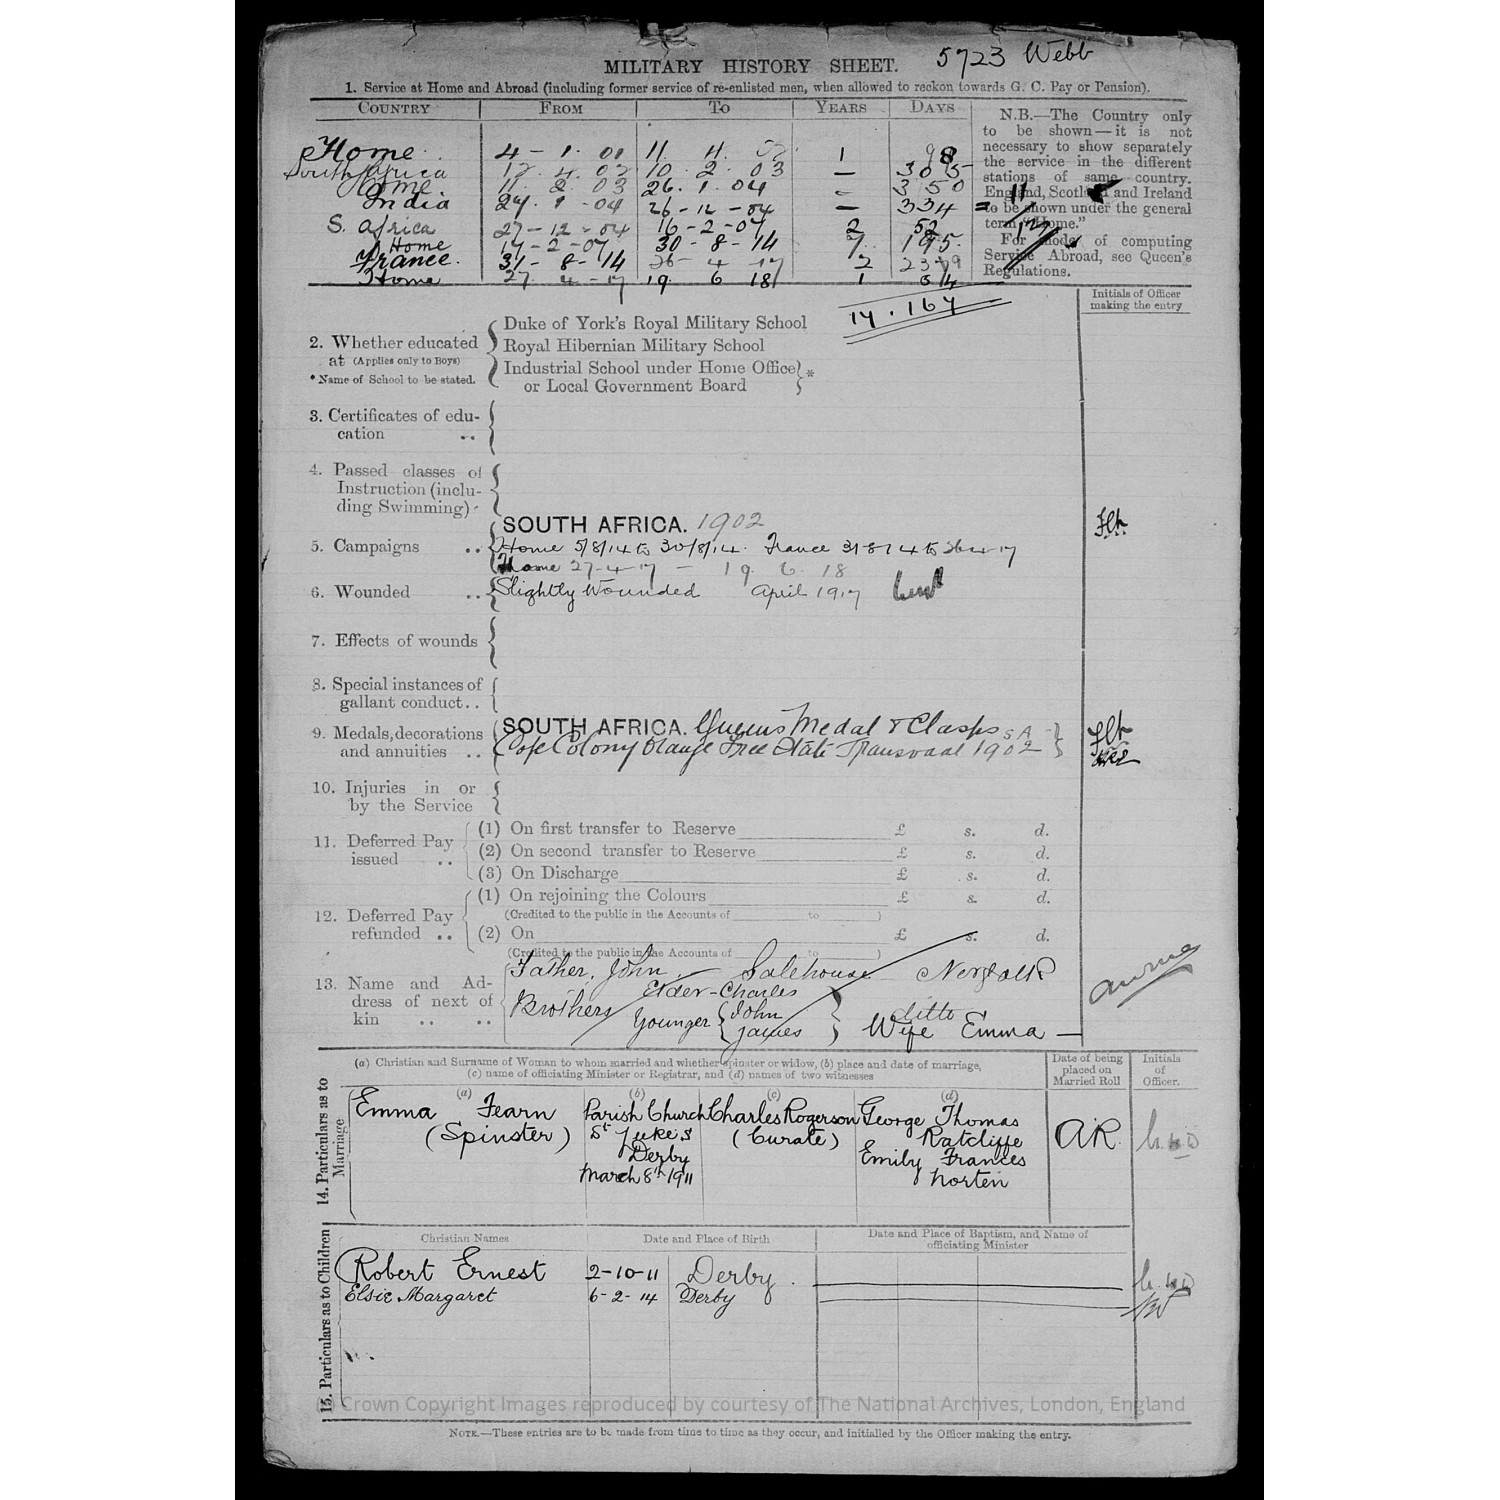 5723 Webb
MILITARY HISTORY SHEET.
1. Service at Home and Abroad (including former service of re-enlisted men, when allowed to reckon towards G. C. Pay or Pension).
COUNTRY FROM TO YEARS DAYS
Home 4 - 1 - 01 11 . 4 . 02 1 98
South Africa 12 . 4 . 02 10 . 2 . 03 — 305
Home 11 . 2 . 03 26 . 1 . 04 — 350
India 27 . 1 - 04 26 - 12 - 04 — 334
S. Africa 27 - 12 - 04 16 - 2 - 07 2 52
Home 17 - 2 - 07 30 - 8 - 14 7 195
France. 31 - 8 - 14 26 4 17 2
Home 27 4 - 17 19 6 18 1
17 . 167
N.B.—The Country only
to be shown — it is not
necessary to show separately
the service in the different
stations of same country.
England, Scotland and Ireland
to be shown under the general
term "Home."
For mode of computing
Service Abroad, see Queen's
Regulations.
Initials of Officer
making the entry
2. Whether educated
at (Applies only to Boys)
* Name of School to be stated.
Duke of York's Royal Military School
Royal Hibernian Military School
Industrial School under Home Office
or Local Government Board *
3. Certificates of edu-
cation ..
4. Passed classes of
Instruction (inclu-
ding Swimming)
5. Campaigns ..
SOUTH AFRICA. 1902
Home 5/8/14 to 30/8/14. France 31-8-14 to 26-4-17
Home 27-4-17 - 19. 6. 18
6. Wounded .. Slightly Wounded April 1917
7. Effects of wounds
8. Special instances of
gallant conduct..
9. Medals, decorations
and annuities ..
SOUTH AFRICA. Queens Medal & Clasps S A
Cape Colony Orange Free State Transvaal 1902
10. Injuries in or
by the Service
11. Deferred Pay
issued ..
(1) On first transfer to Reserve £ s. d.
(2) On second transfer to Reserve £ s. d.
(3) On Discharge £ s. d.
12. Deferred Pay
refunded ..
(1) On rejoining the Colours £ s. d.
(Credited to the public in the Accounts of to )
(2) On £ s. d.
(Credited to the public in the Accounts of to )
13. Name and Ad-
dress of next of
kin .. ..
Father, John — Salehouse Norfolk
Brothers Elder - Charles
Younger { John
James } ditto
Wife Emma —
14. Particulars as to Marriage
(a) Christian and Surname of Woman to whom married and whether spinster or widow, (b) place and date of marriage,
(c) name of officiating Minister or Registrar, and (d) names of two witnesses
Date of being
placed on
Married Roll
Initials
of
Officer.
(a) (b) (c) (d)
Emma Fearn
(Spinster)
Parish Church
St Luke's
Derby
March 8th 1911
Charles Rogerson
(Curate)
George Thomas
Ratcliffe
Emily Frances
Norten
AR
15. Particulars as to Children
Christian Names Date and Place of Birth Date and Place of Baptism, and Name of
officiating Minister
Robert Ernest 2-10-11 Derby
Elsie Margaret 6-2-14 Derby
© Crown Copyright Images reproduced by courtesy of The National Archives, London, England
NOTE.—These entries are to be made from time to time as they occur, and initialled by the Officer making the entry.